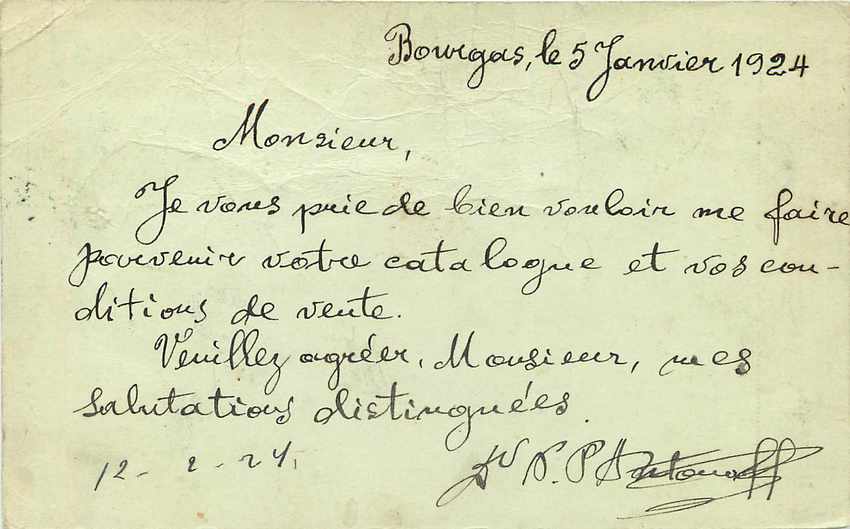 Bourgas, le 5 Janvier 1924
Monsieur,
Je vous prie de bien vouloir me faire
parvenir votre catalogue et vos con-
ditions de vente.
Veuillez agréer, Monsieur, mes
salutations distinguées.
Dr P. P. Antonoff
12 - 2 - 24.